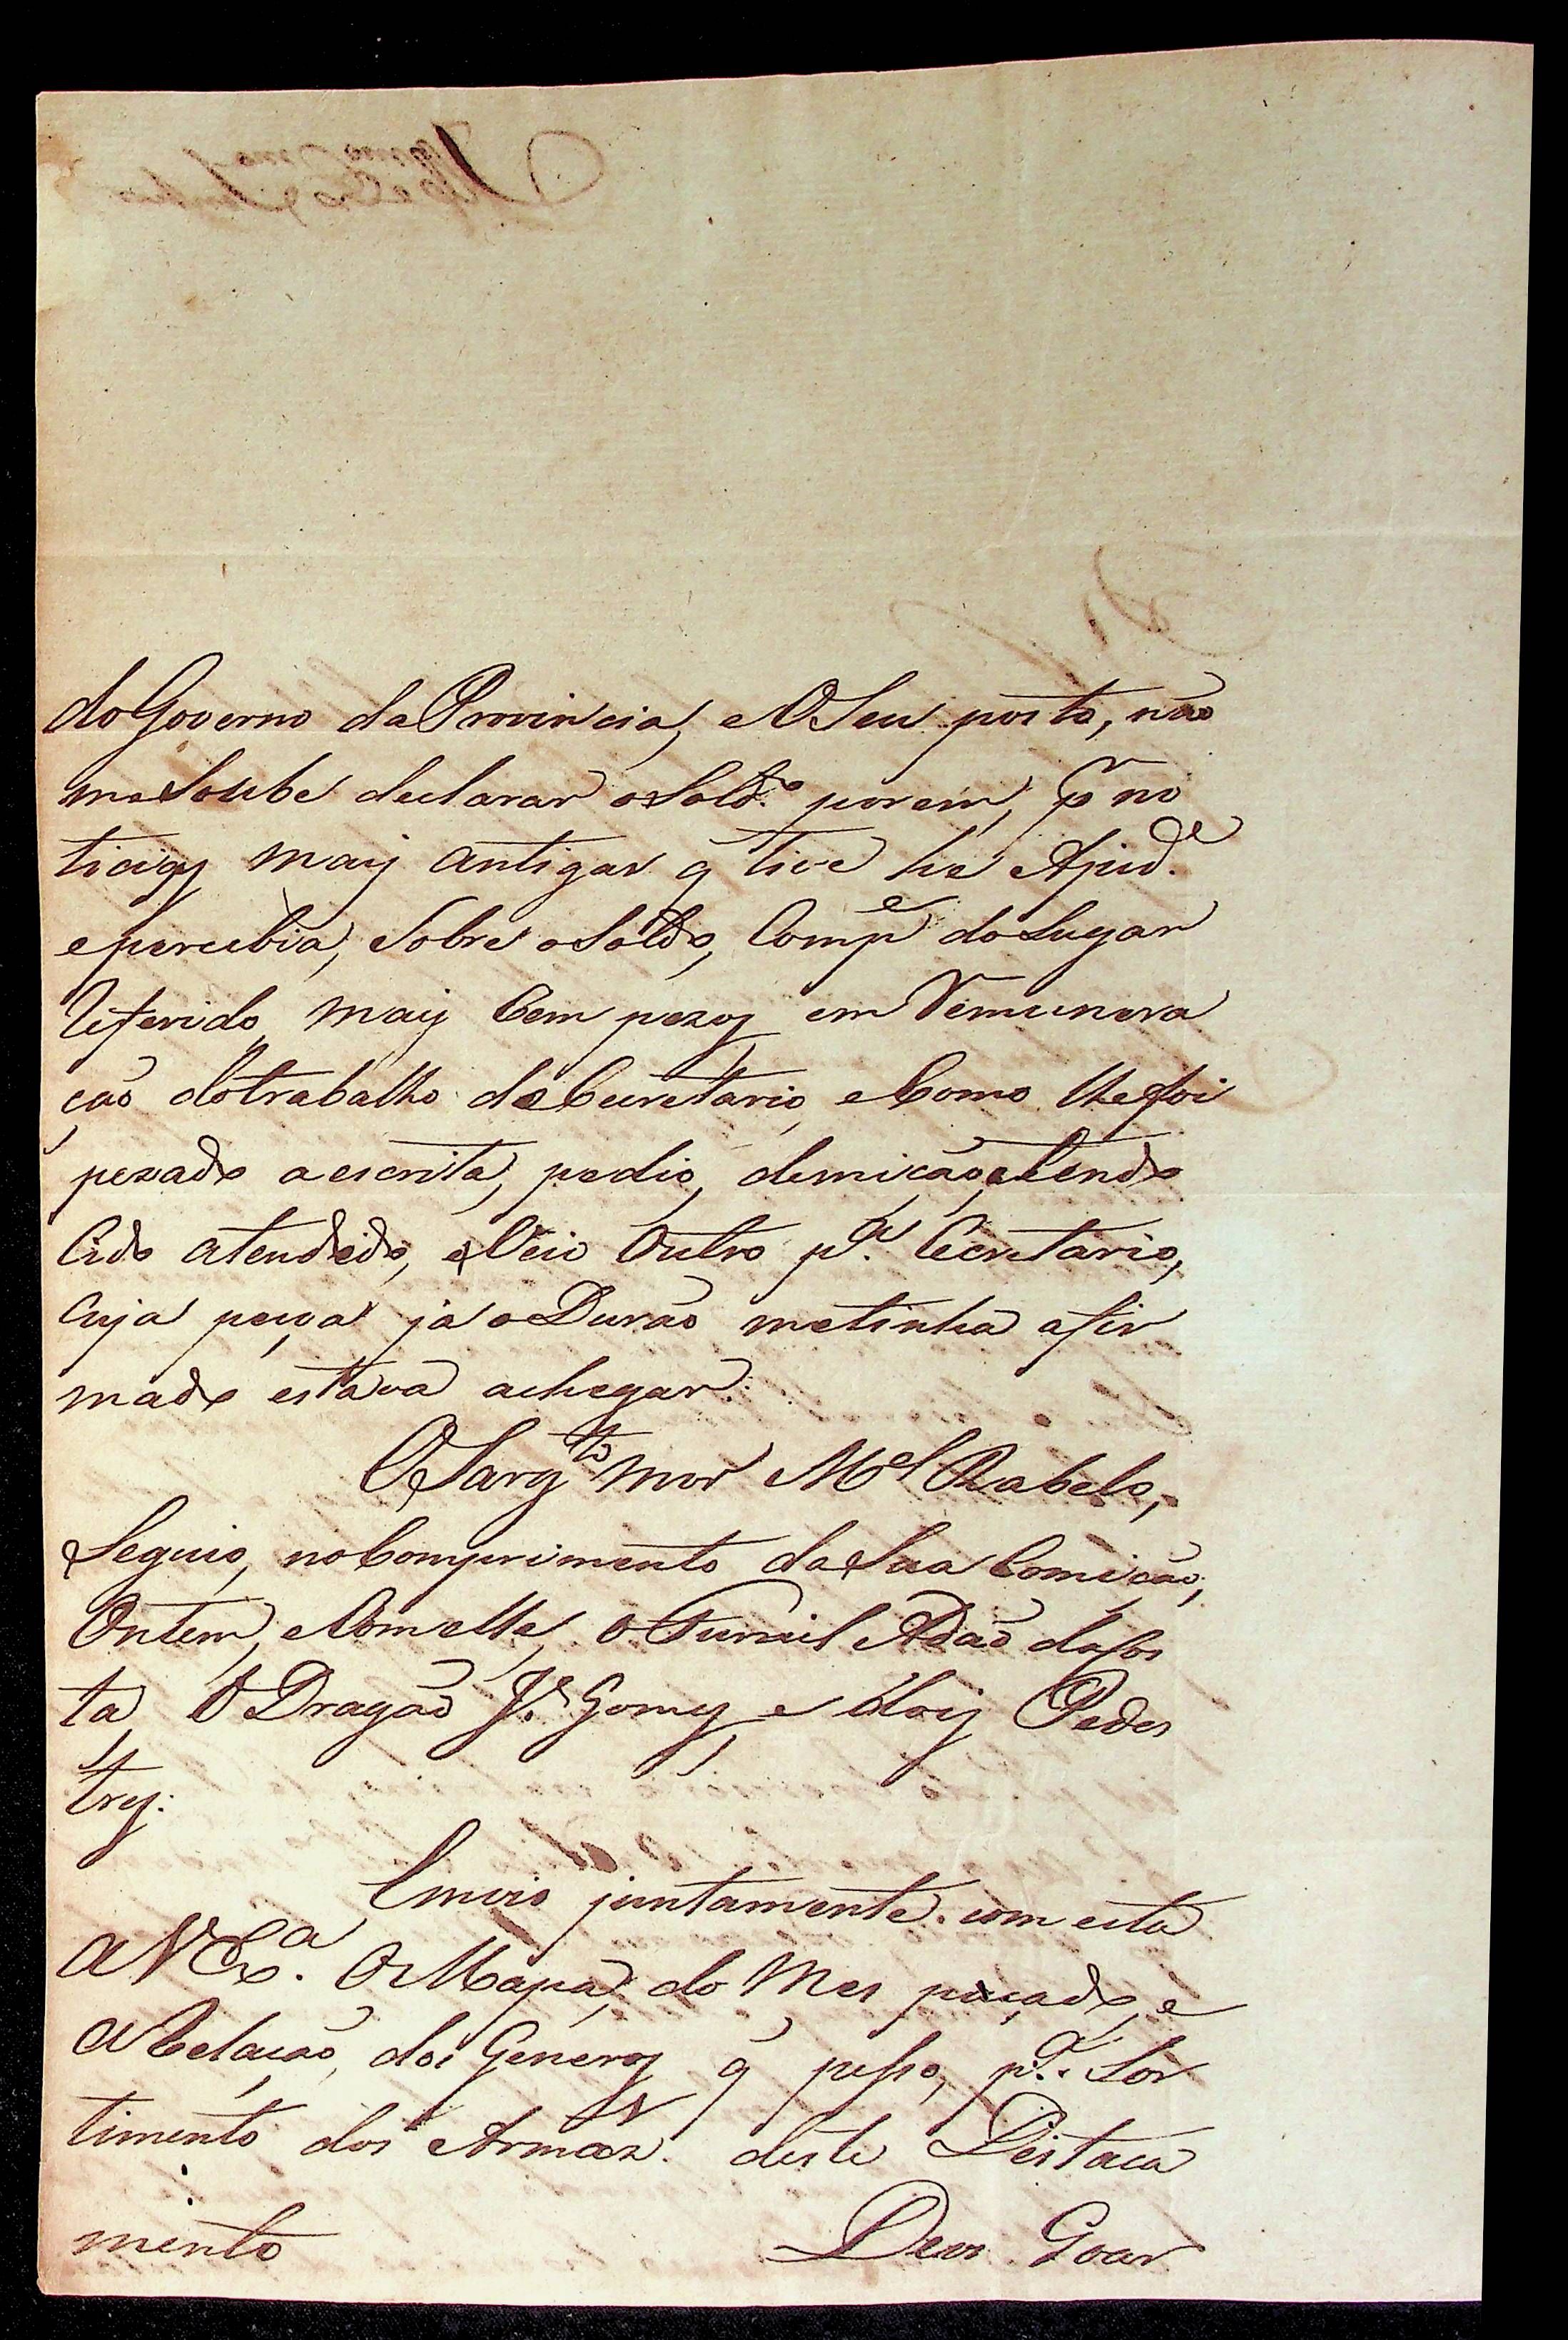 do Governo da Provincia, e O Seu posto, não
mo Soube declarar o Sold.º porem, p.r no
ticias mais antigas q̃ tive he Ajud.e
e percebia, Sobre o Soldo, Comp.e do Lugar
referido mais Cem pezos em Remunera
ção do trabalho de Cecretario, e Como lhe foi
pezado a escrita, pedio, demição, e tendo
Cido atendido, e Veio Outro p.a Cecretario,
Cuja peçoa ja o Durão me tinha afir
mado estava a chegar.
O Sarg.to mor M.el Rabelo,
Seguio, no Comprimento da Sua Comição,
Ontem, e Com elle, o Furriel Adão da Cos
ta O Dragão J.e Gomes, e dois Pedes
tres.
Envio juntamente com esta
a V Ex.a Os Mapas, do Mes paçado, e
a Relação, dos Generos q̃ pesso, p.a Sor
timento dos Armaz.s deste Destaca
mento
Deos Goar